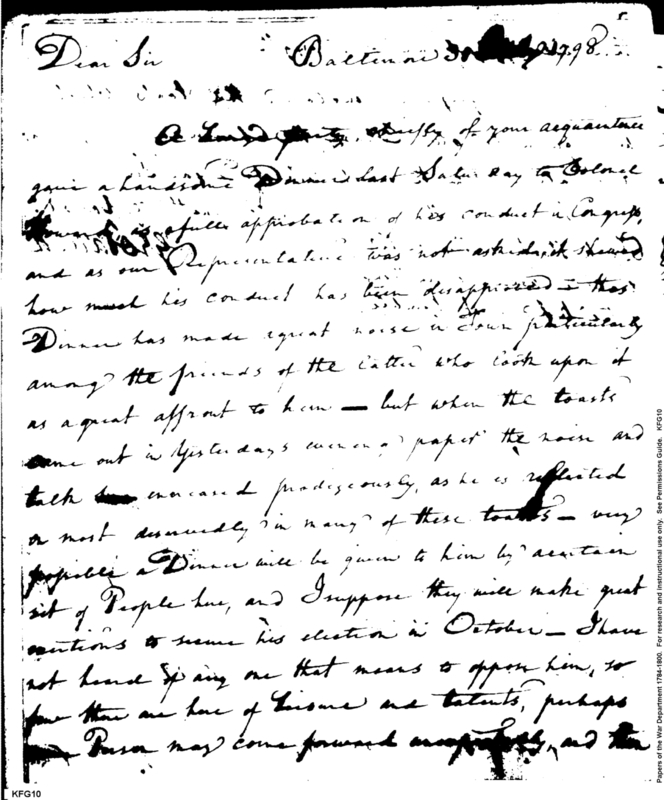 Dear Sir Baltimore 30 1798
A Large party, chiefly of your acquaintence
gave a handsome Dinner last Saturday to Colonel
Howard as a full approbation of his conduct in Congress,
and as our Representative was not asked, it shewed
how much his conduct has been disapproved - this
Dinner has made a great noise in Town particularly
among the friends of the latter who look upon it
as a great affront to him — but when the toasts
came out in Yesterdays evening paper the noise and
talk encreased prodigeously, as he is reflected
on most deservedly in many of these toasts — very
propable a Dinner will be given to him by a certain
set of People here, and I suppose they will make great
exertions to secure his election in October — I have
not heard of any one that means to oppose him, so
few there are here of Leisure and talents, perhaps
Person may come forward and then
KFG10
Papers of the War Department 1784-1800. For research and instructional use only. See Permissions Guide. KFG10